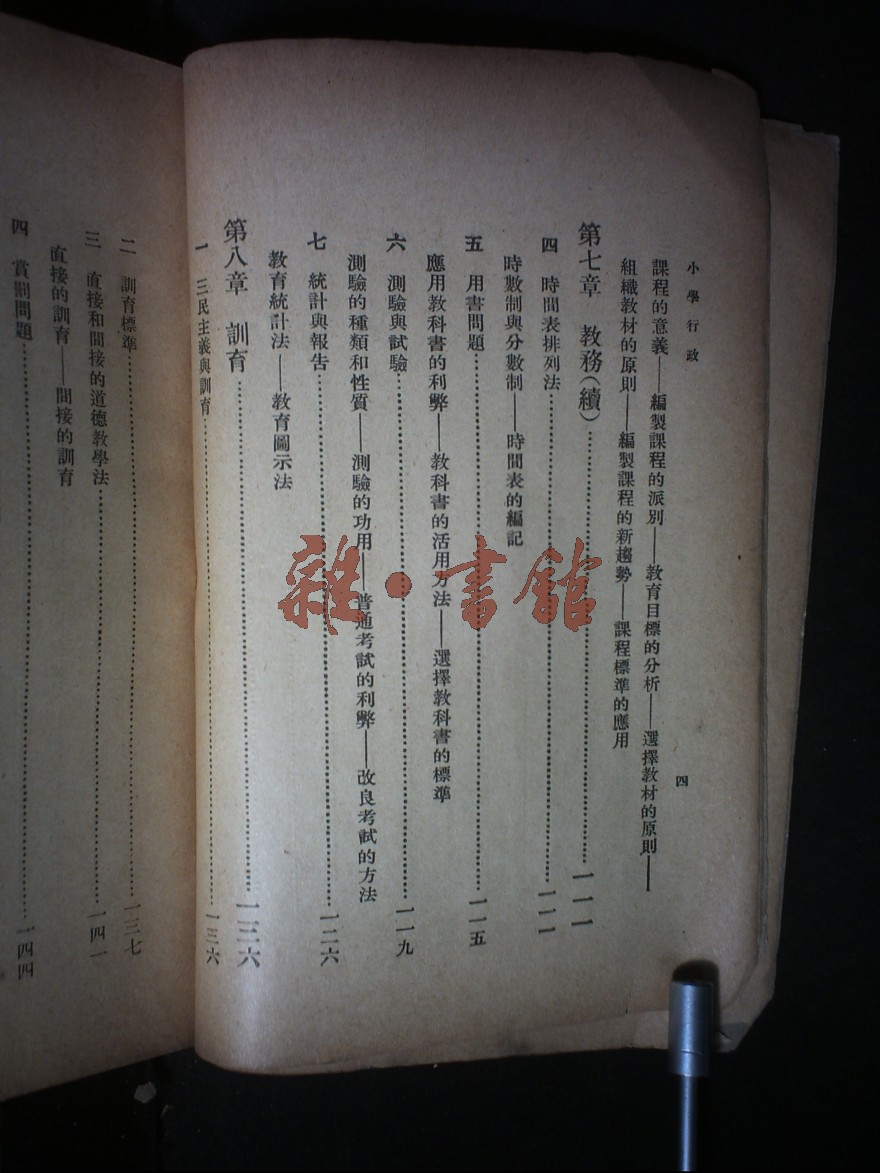 小學行政
四
課程的意義——編製課程的派別——教育目標的分析——選擇教材的原則——
組織教材的原則——編製課程的新趨勢——課程標準的應用
第七章 教務(續)……一一一
四 時間表排列法……一一一
時數制與分數制——時間表的編記
五 用書問題……一一五
應用教科書的利弊——教科書的活用方法——選擇教科書的標準
六 測驗與試驗……一一九
測驗的種類和性質——測驗的功用——普通考試的利弊——改良考試的方法
七 統計與報告……一二六
教育統計法——教育圖示法
第八章 訓育……一三六
一 三民主義與訓育……一三六
二 訓育標準……一三七
三 直接和間接的道德教學法……一四一
直接的訓育——間接的訓育
四 賞罰問題……一四四
雜·書館